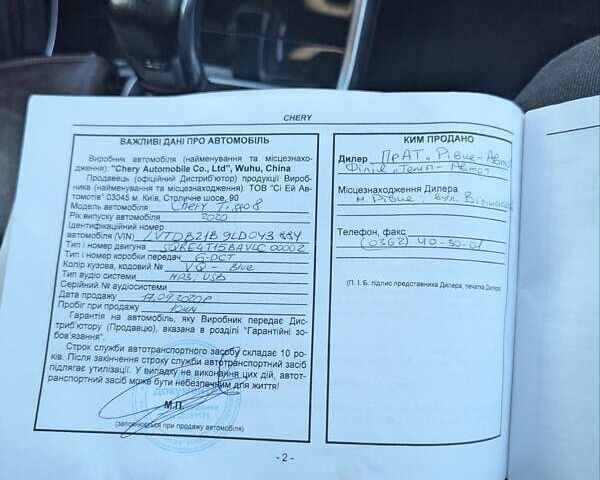 CHERY
ВАЖЛИВІ ДАНІ ПРО АВТОМОБІЛЬ
Виробник автомобіля (найменування та місцезнахо-
дження): "Chery Automobile Co., Ltd", Wuhu, China
Продавець (офіційний Дистриб'ютор) продукції Виробника
(найменування та місцезнаходження): ТОВ "Сі Ей Ав-
томотів" 03045 м. Київ, Столичне шосе, 90
Модель автомобіля Chery Tiggo 8
Рік випуску автомобіля 2020
Ідентифікаційний номер
автомобіля (VIN)
Тип і номер двигуна SQRE4T15BAVLC 00002
Тип і номер коробки передач 6-DCT
Колір кузова, кодовий № VQ - Blue
Тип аудіо системи MP3, USB
Серійний № аудіосистеми
Дата продажу 17.09.2020р
Пробіг при продажу 10км
Гарантія на автомобіль, яку Виробник передає Дис-
триб'ютору (Продавцю), вказана в розділі "Гарантійні зо-
бов'язання".
Строк служби автотранспортного засобу складає 10 ро-
ків. Після закінчення строку служби автотранспортний засіб
підлягає утилізації. У випадку не виконання цих дій, автот-
ранспортний засіб може бути небезпечним для життя!
М.П.
(заповнюється при продажу автомобіля)
КИМ ПРОДАНО
Дилер ПрАТ „Рівне-Авто"
Філія „Темп-Авто"
Місцезнаходження Дилера
м. Рівне, вул.
Телефон, факс
(0362) 40-30-01
(П. І. Б. підпис представника Дилера, печатка Дилера)
- 2 -